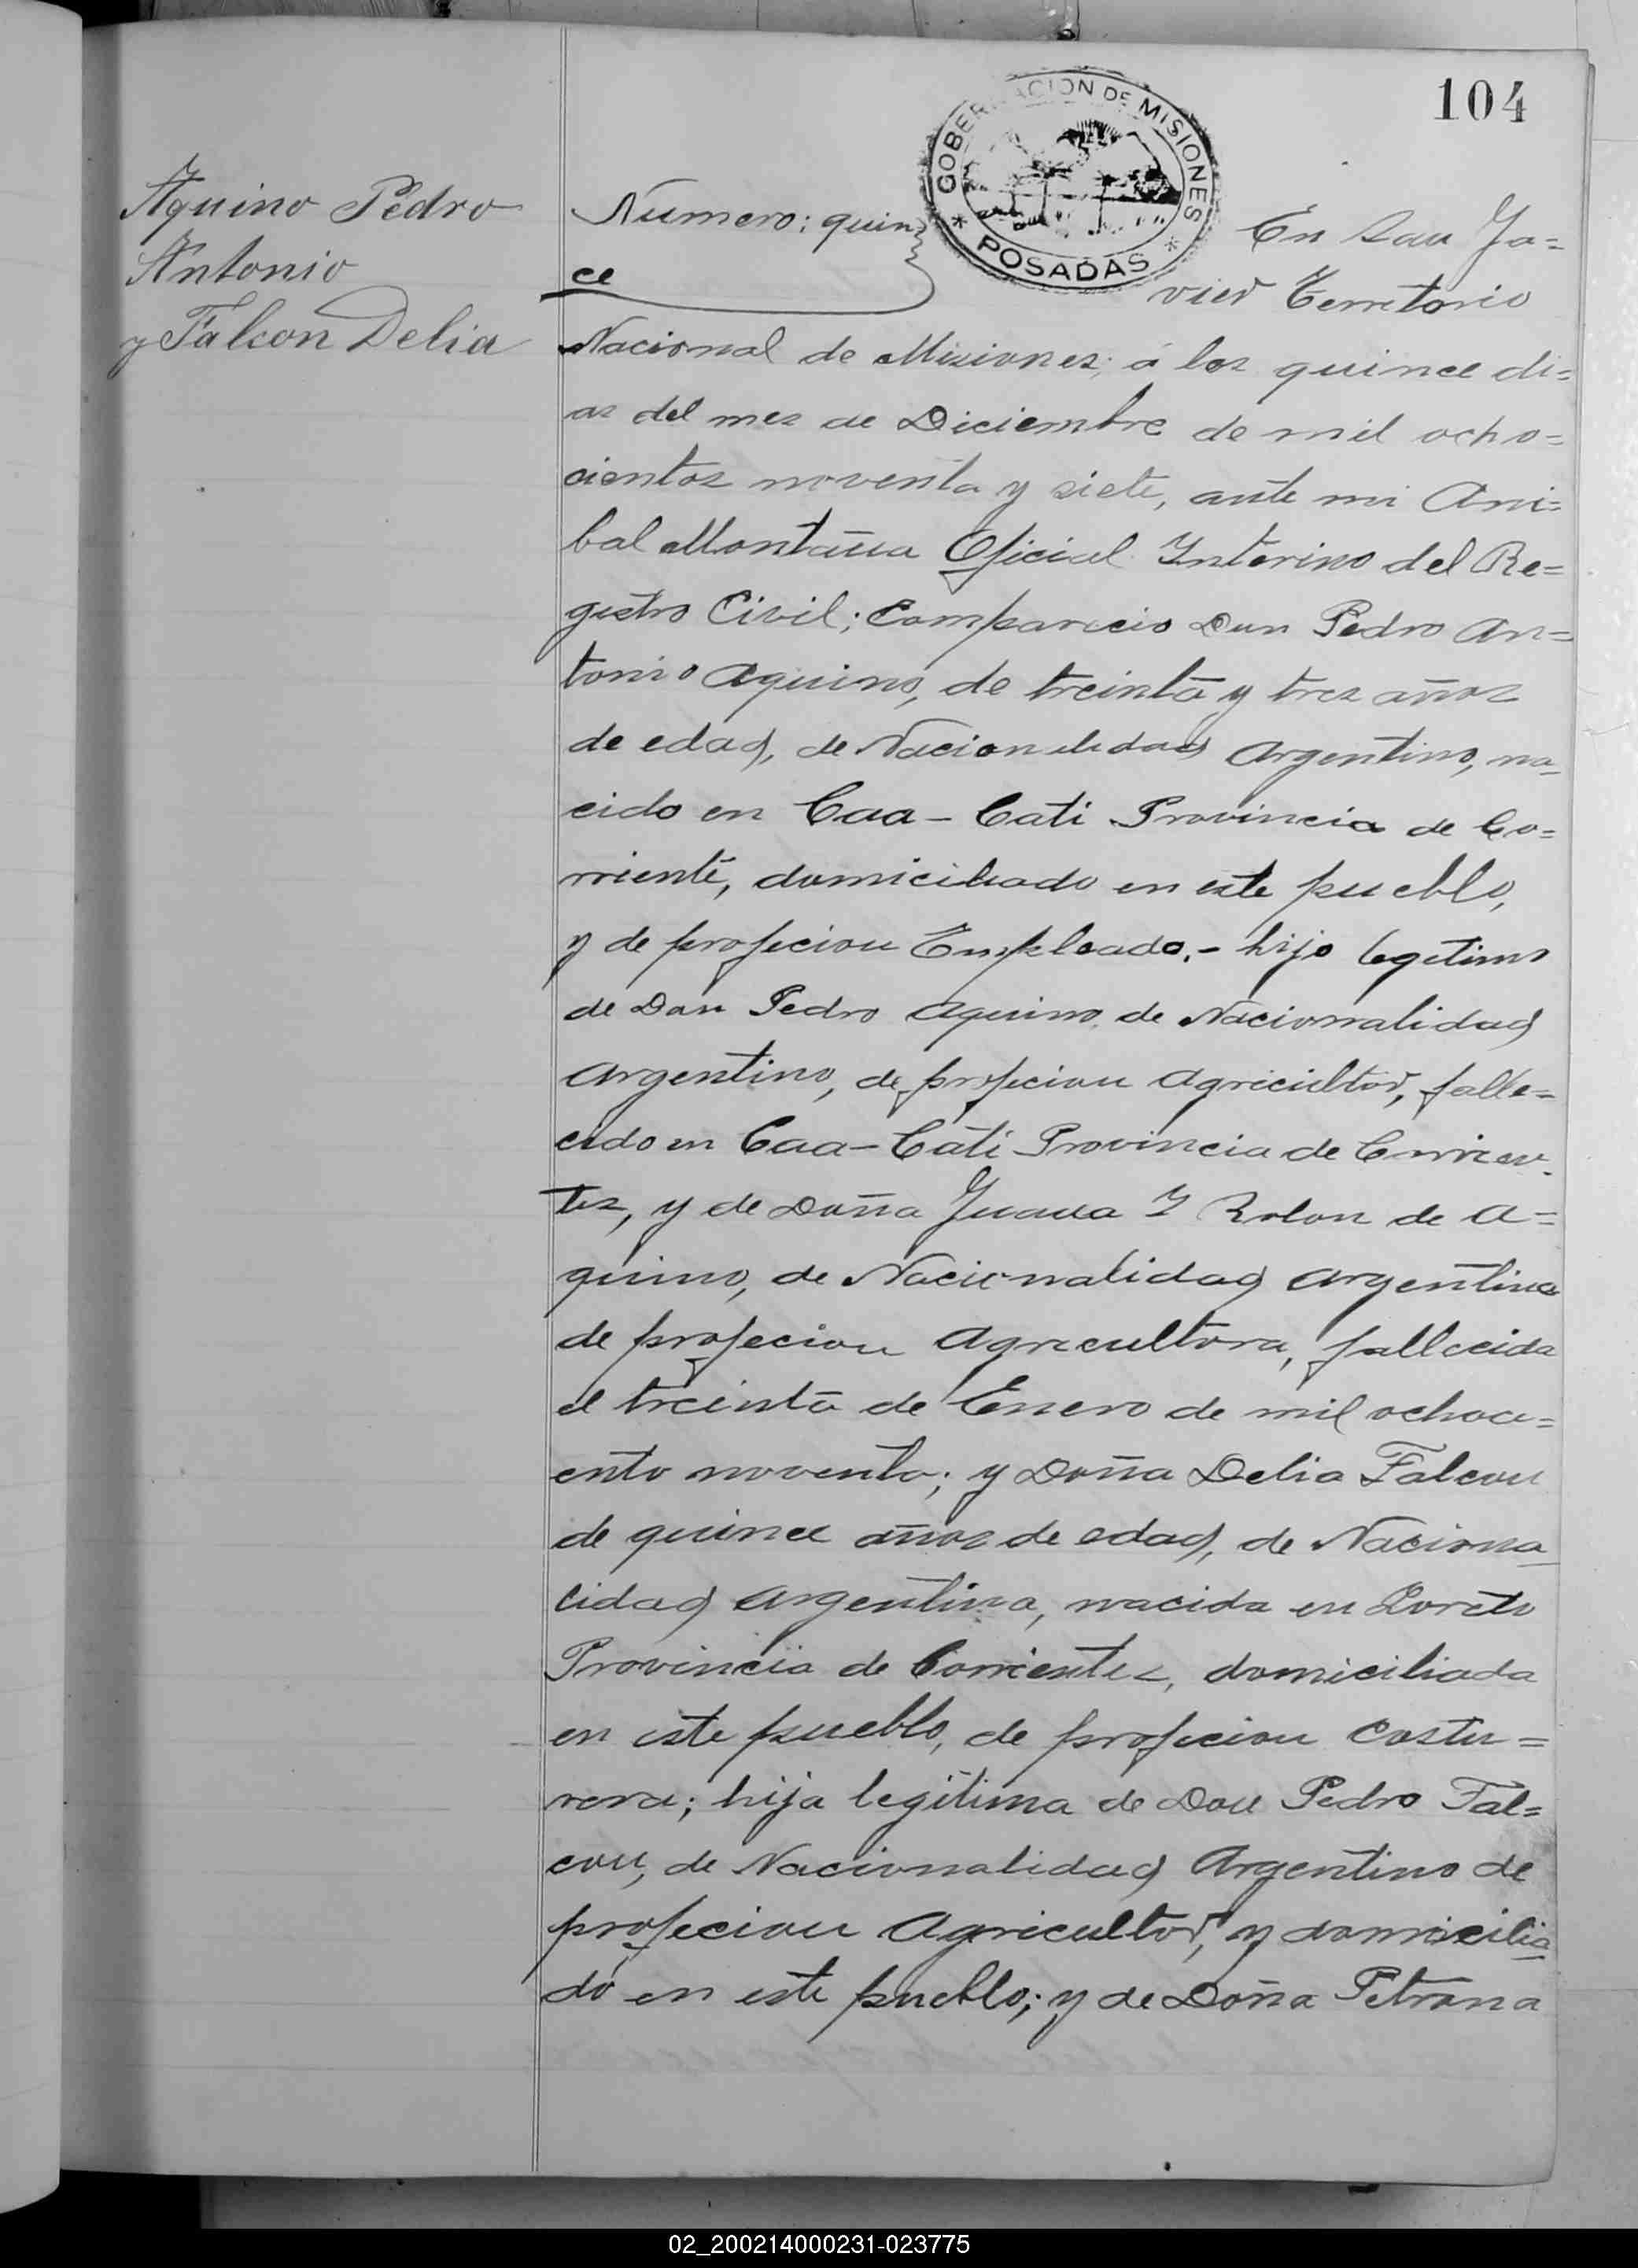 104
GOBERNACION DE MISIONES
* POSADAS *
Aquino Pedro
Antonio
y Falcon Delia
Numero: quin
ce
En San Ja=
vier Territorio
Nacional de Misiones; á los quince di=
as del mes de Diciembre de mil ocho=
cientos noventa y siete, ante mi Ani=
bal Montaña Oficial Interino del Re=
gistro Civil; Comparecio Don Pedro An=
tonio Aquino, de treinta y tres años
de edad, de Nacionalidad Argentino, na_
cido en Caa-Cati Provincia de Co=
rriente, domiciliado en este pueblo,
y de profecion Empleado.- hijo legitimo
de Don Pedro Aquino, de Nacionalidad
Argentino, de profecion Agricultor, falle=
cido en Caa-Cati Provincia de Corrien-
tes, y de Doña Juana I Rolon de A=
quino, de Nacionalidad Argentina
de profecion Agricultora, fallecida
el treinta de Enero de mil ochoci=
ento noventa; y Doña Delia Falcon
de quince años de edad, de Naciona_
lidad Argentina, nacida en Loreto
Provincia de Corrientes, domiciliada
en este pueblo, de profecion Costu=
rera; hija legitima de Don Pedro Fal=
con, de Nacionalidad Argentino de
profecion Agricultor, y domicilia
do en este pueblo; y de Doña Petrona
02_200214000231-023775